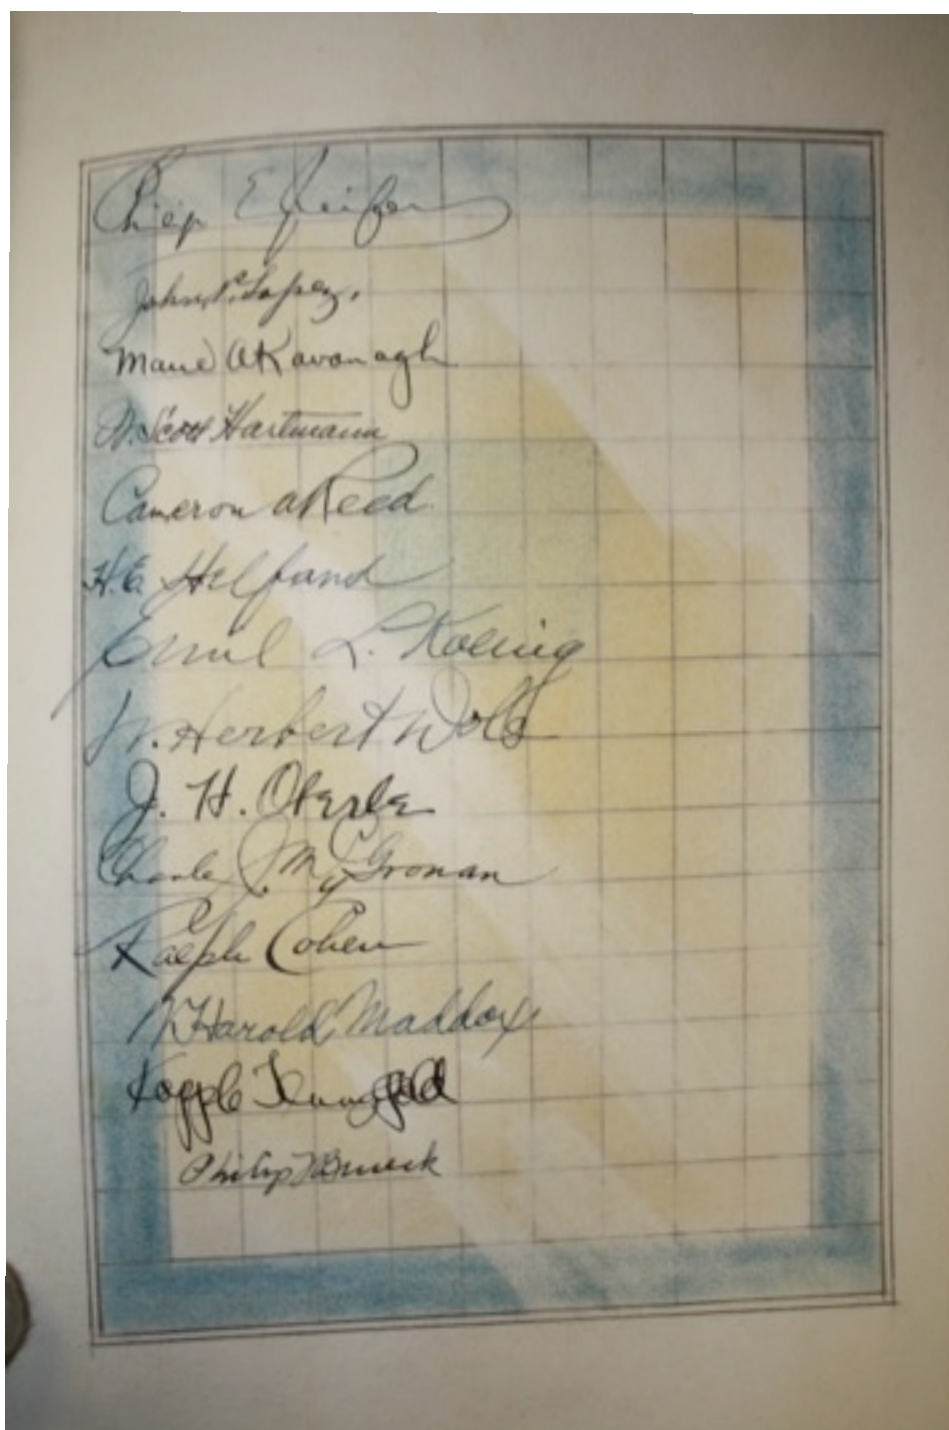 Philip E.
John P. Lopez.
Marie A Kavanagh
D. Scott Hartmann
Cameron A Reed
H. E. Helfand
Emil L. Koenig
W. Herbert Wolb
J. H. Oberle
Charles J. McGronan
Ralph Cohen
W Harold Maddox
Kopple
Philip